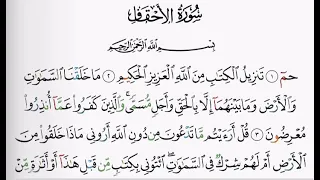 سُورَةُ الْأَحْقَافِ
بِسْمِ اللَّهِ الرَّحْمَٰنِ الرَّحِيمِ
حمٓ ١ تَنزِيلُ الْكِتَٰبِ مِنَ اللَّهِ الْعَزِيزِ الْحَكِيمِ ٢ مَا خَلَقْنَا السَّمَٰوَٰتِ
وَالْأَرْضَ وَمَا بَيْنَهُمَا إِلَّا بِالْحَقِّ وَأَجَلٍ مُّسَمًّى ۚ وَالَّذِينَ كَفَرُوا عَمَّا أُنذِرُوا
مُعْرِضُونَ ٣ قُلْ أَرَءَيْتُم مَّا تَدْعُونَ مِن دُونِ اللَّهِ أَرُونِي مَاذَا خَلَقُوا مِنَ
الْأَرْضِ أَمْ لَهُمْ شِرْكٌ فِي السَّمَٰوَٰتِ ۖ ائْتُونِي بِكِتَٰبٍ مِّن قَبْلِ هَٰذَا أَوْ أَثَٰرَةٍ مِّنْ